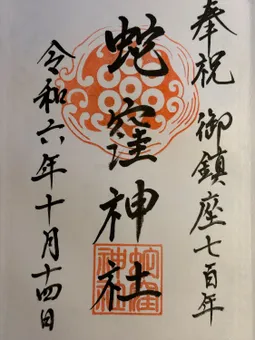 奉祝 御鎮座七百年
蛇窪神社
令和六年十月十四日
蛇窪神社